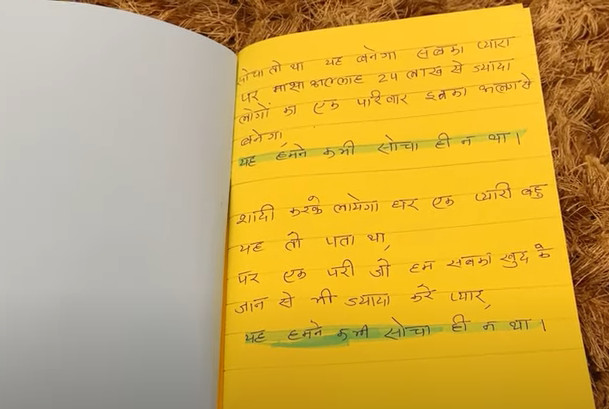 सोचा तो था यह बनेगा सबका प्यारा
पर माशा अल्लाह 24 लाख से ज्यादा
लोगों का एक परिवार इनका अलग से
बनेगा,
यह हमने कभी सोचा ही न था।
शादी करके लायेगा घर एक प्यारी बहु
यह तो पता था,
पर एक परी जो हम सबको खुद के
जान से भी ज्यादा करे प्यार,
यह हमने कभी सोचा ही न था।